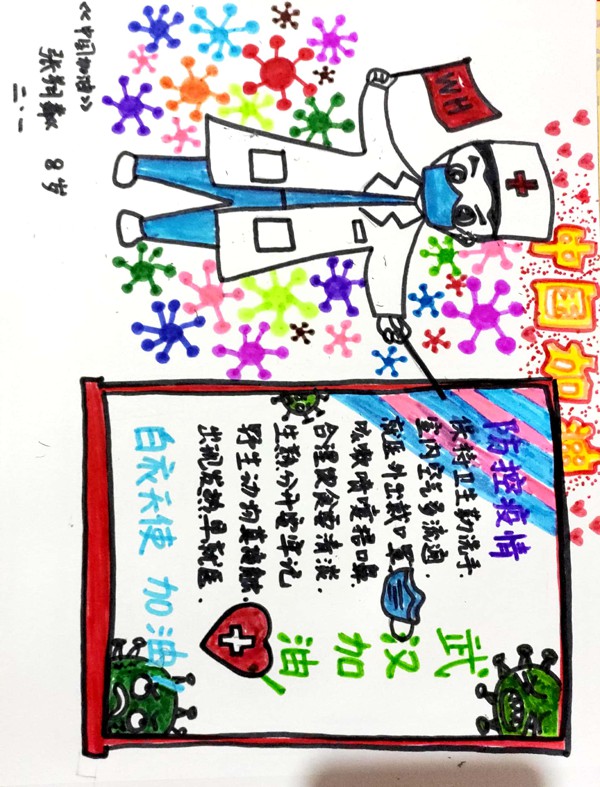 中国加油
WH
防控疫情
保持卫生勤洗手.
室内空气多流通.
就医外出戴口罩
咳嗽喷嚏捂口鼻
合理饮食要清淡.
生熟分开应牢记
野生动物莫贪馋.
出现发热早就医.
武汉
加
油
白衣天使 加油!
《中国加油》
张 8岁
二.一